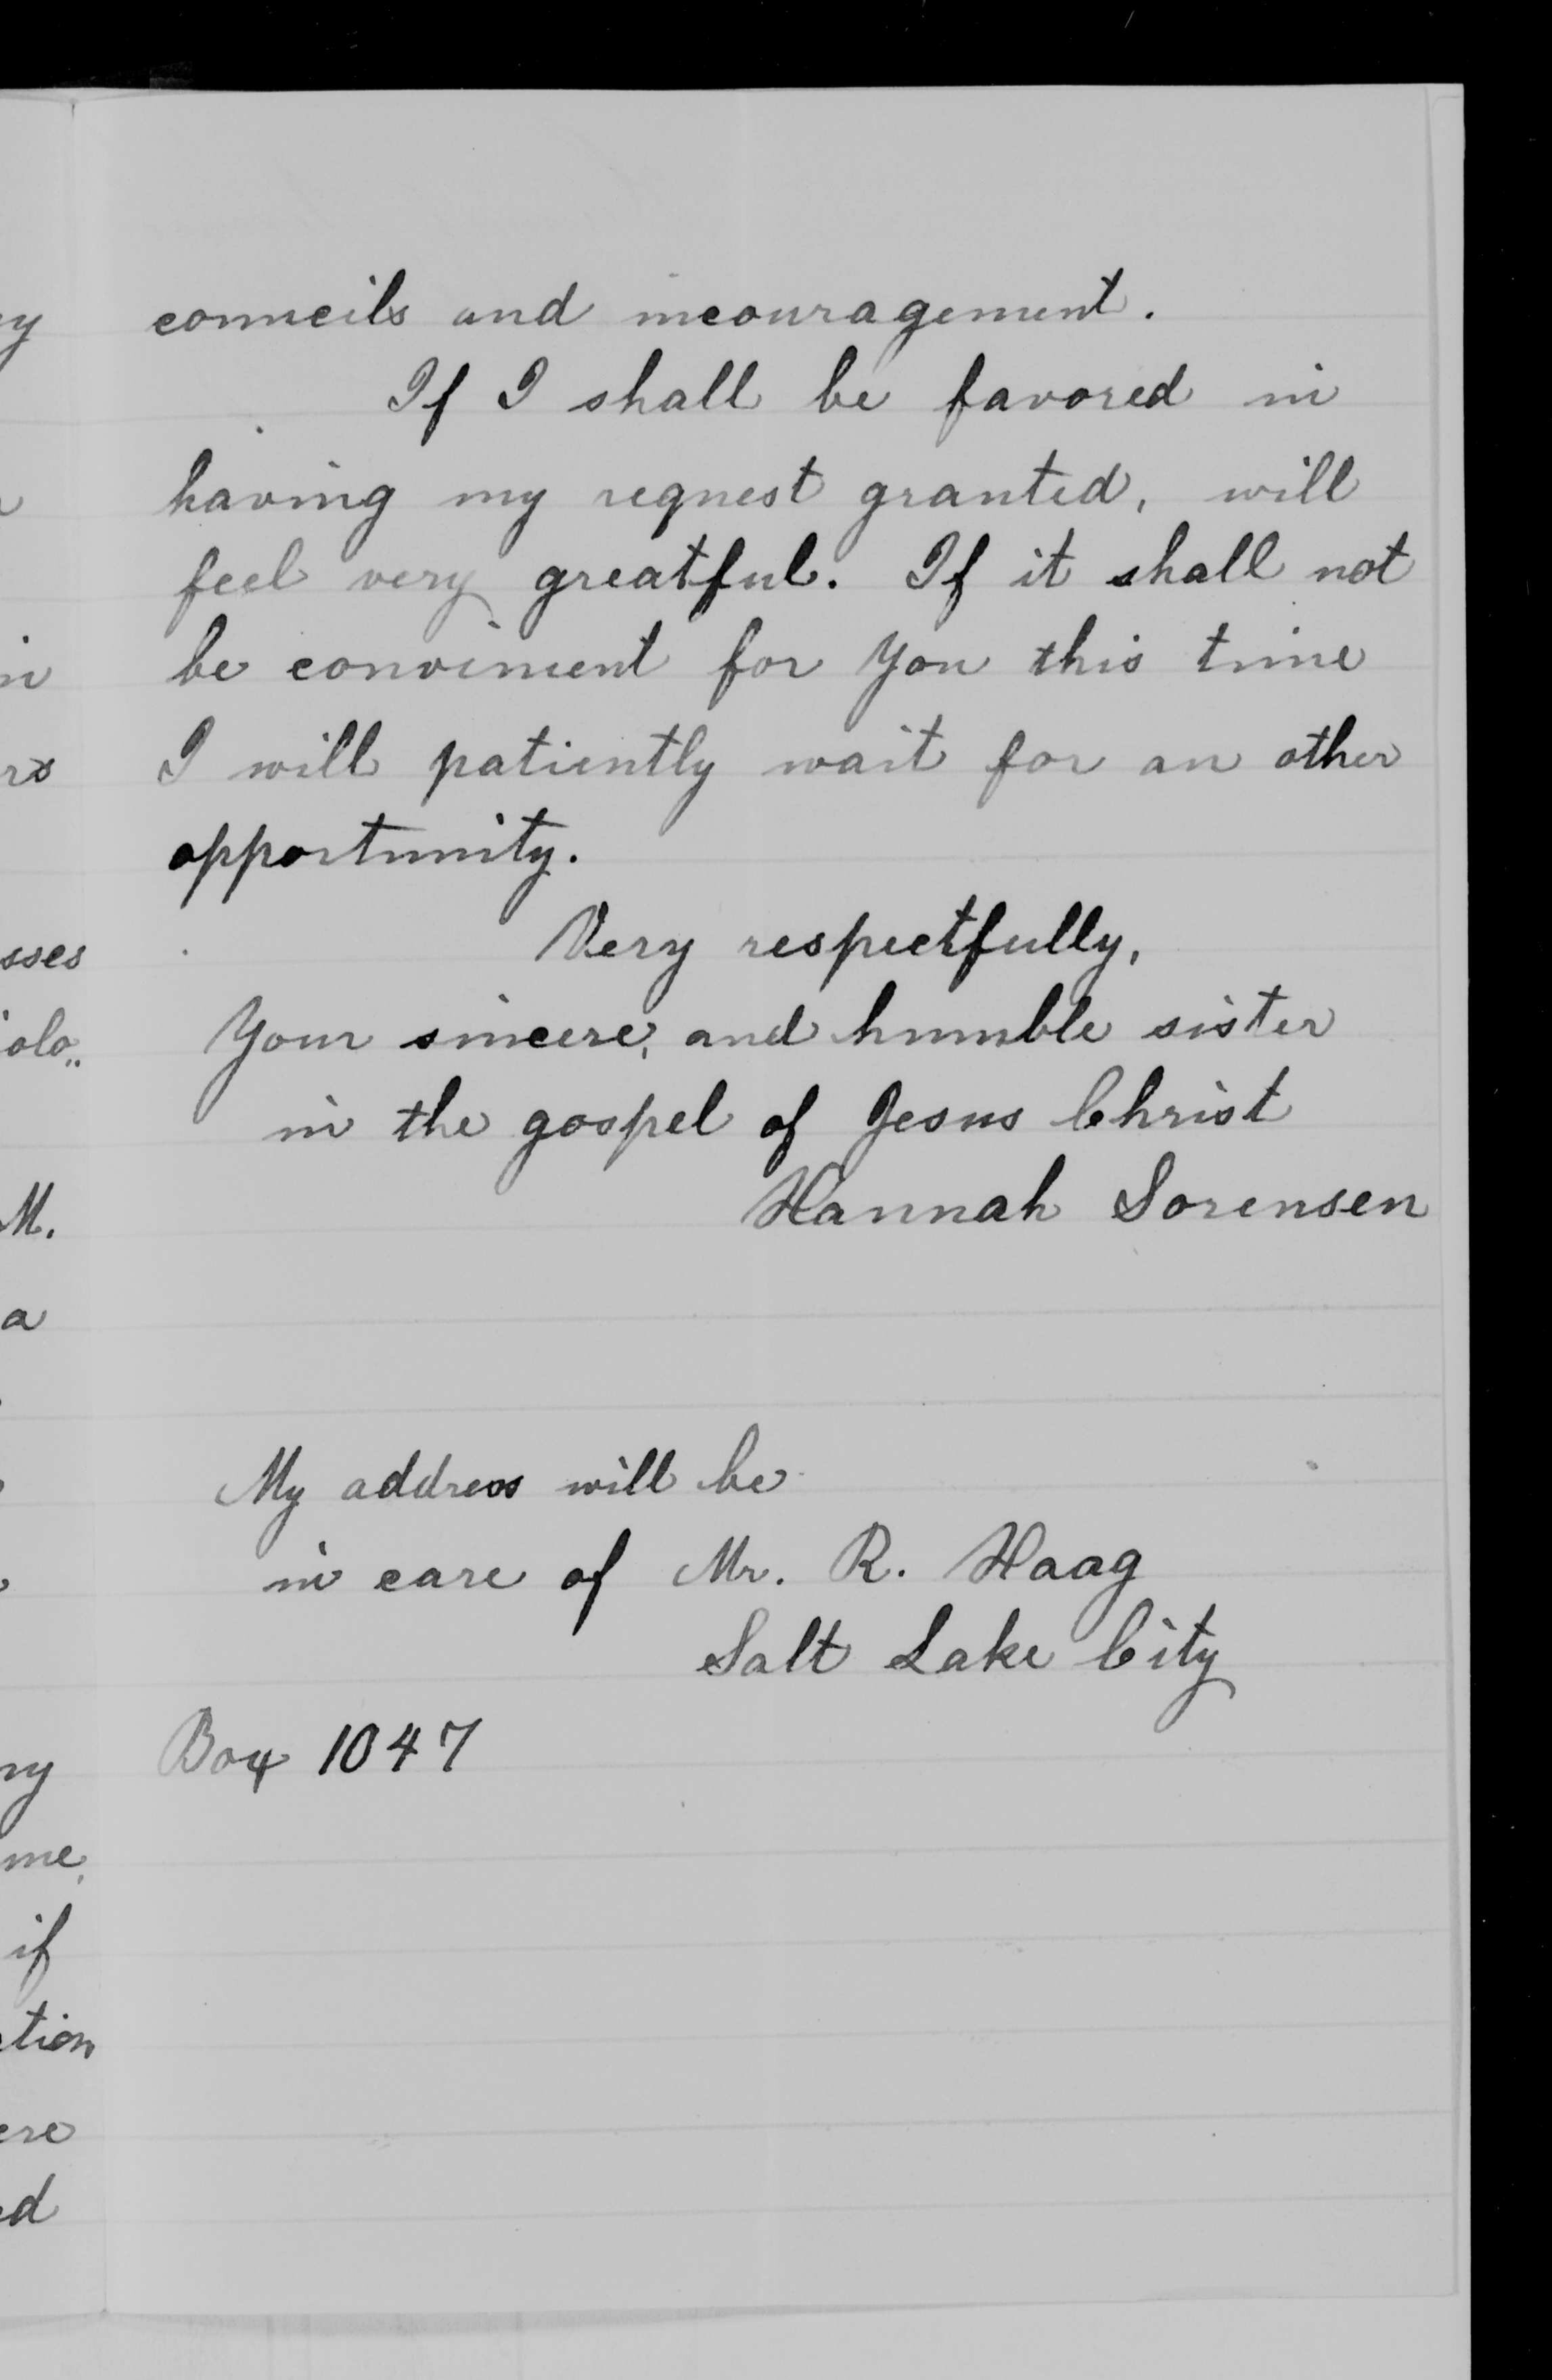 councils and incouragement.
If I shall be favored in
having my request granted, will
feel very greatful. If it shall not
be convinient for you this time
I will patiently wait for an other
opportunity.
Very respectfully,
Your sincere, and humble sister
in the gospel of Jesus Christ
Hannah Sorensen
My address will be
in care of Mr. R. Haag
Salt Lake City
Box 1047